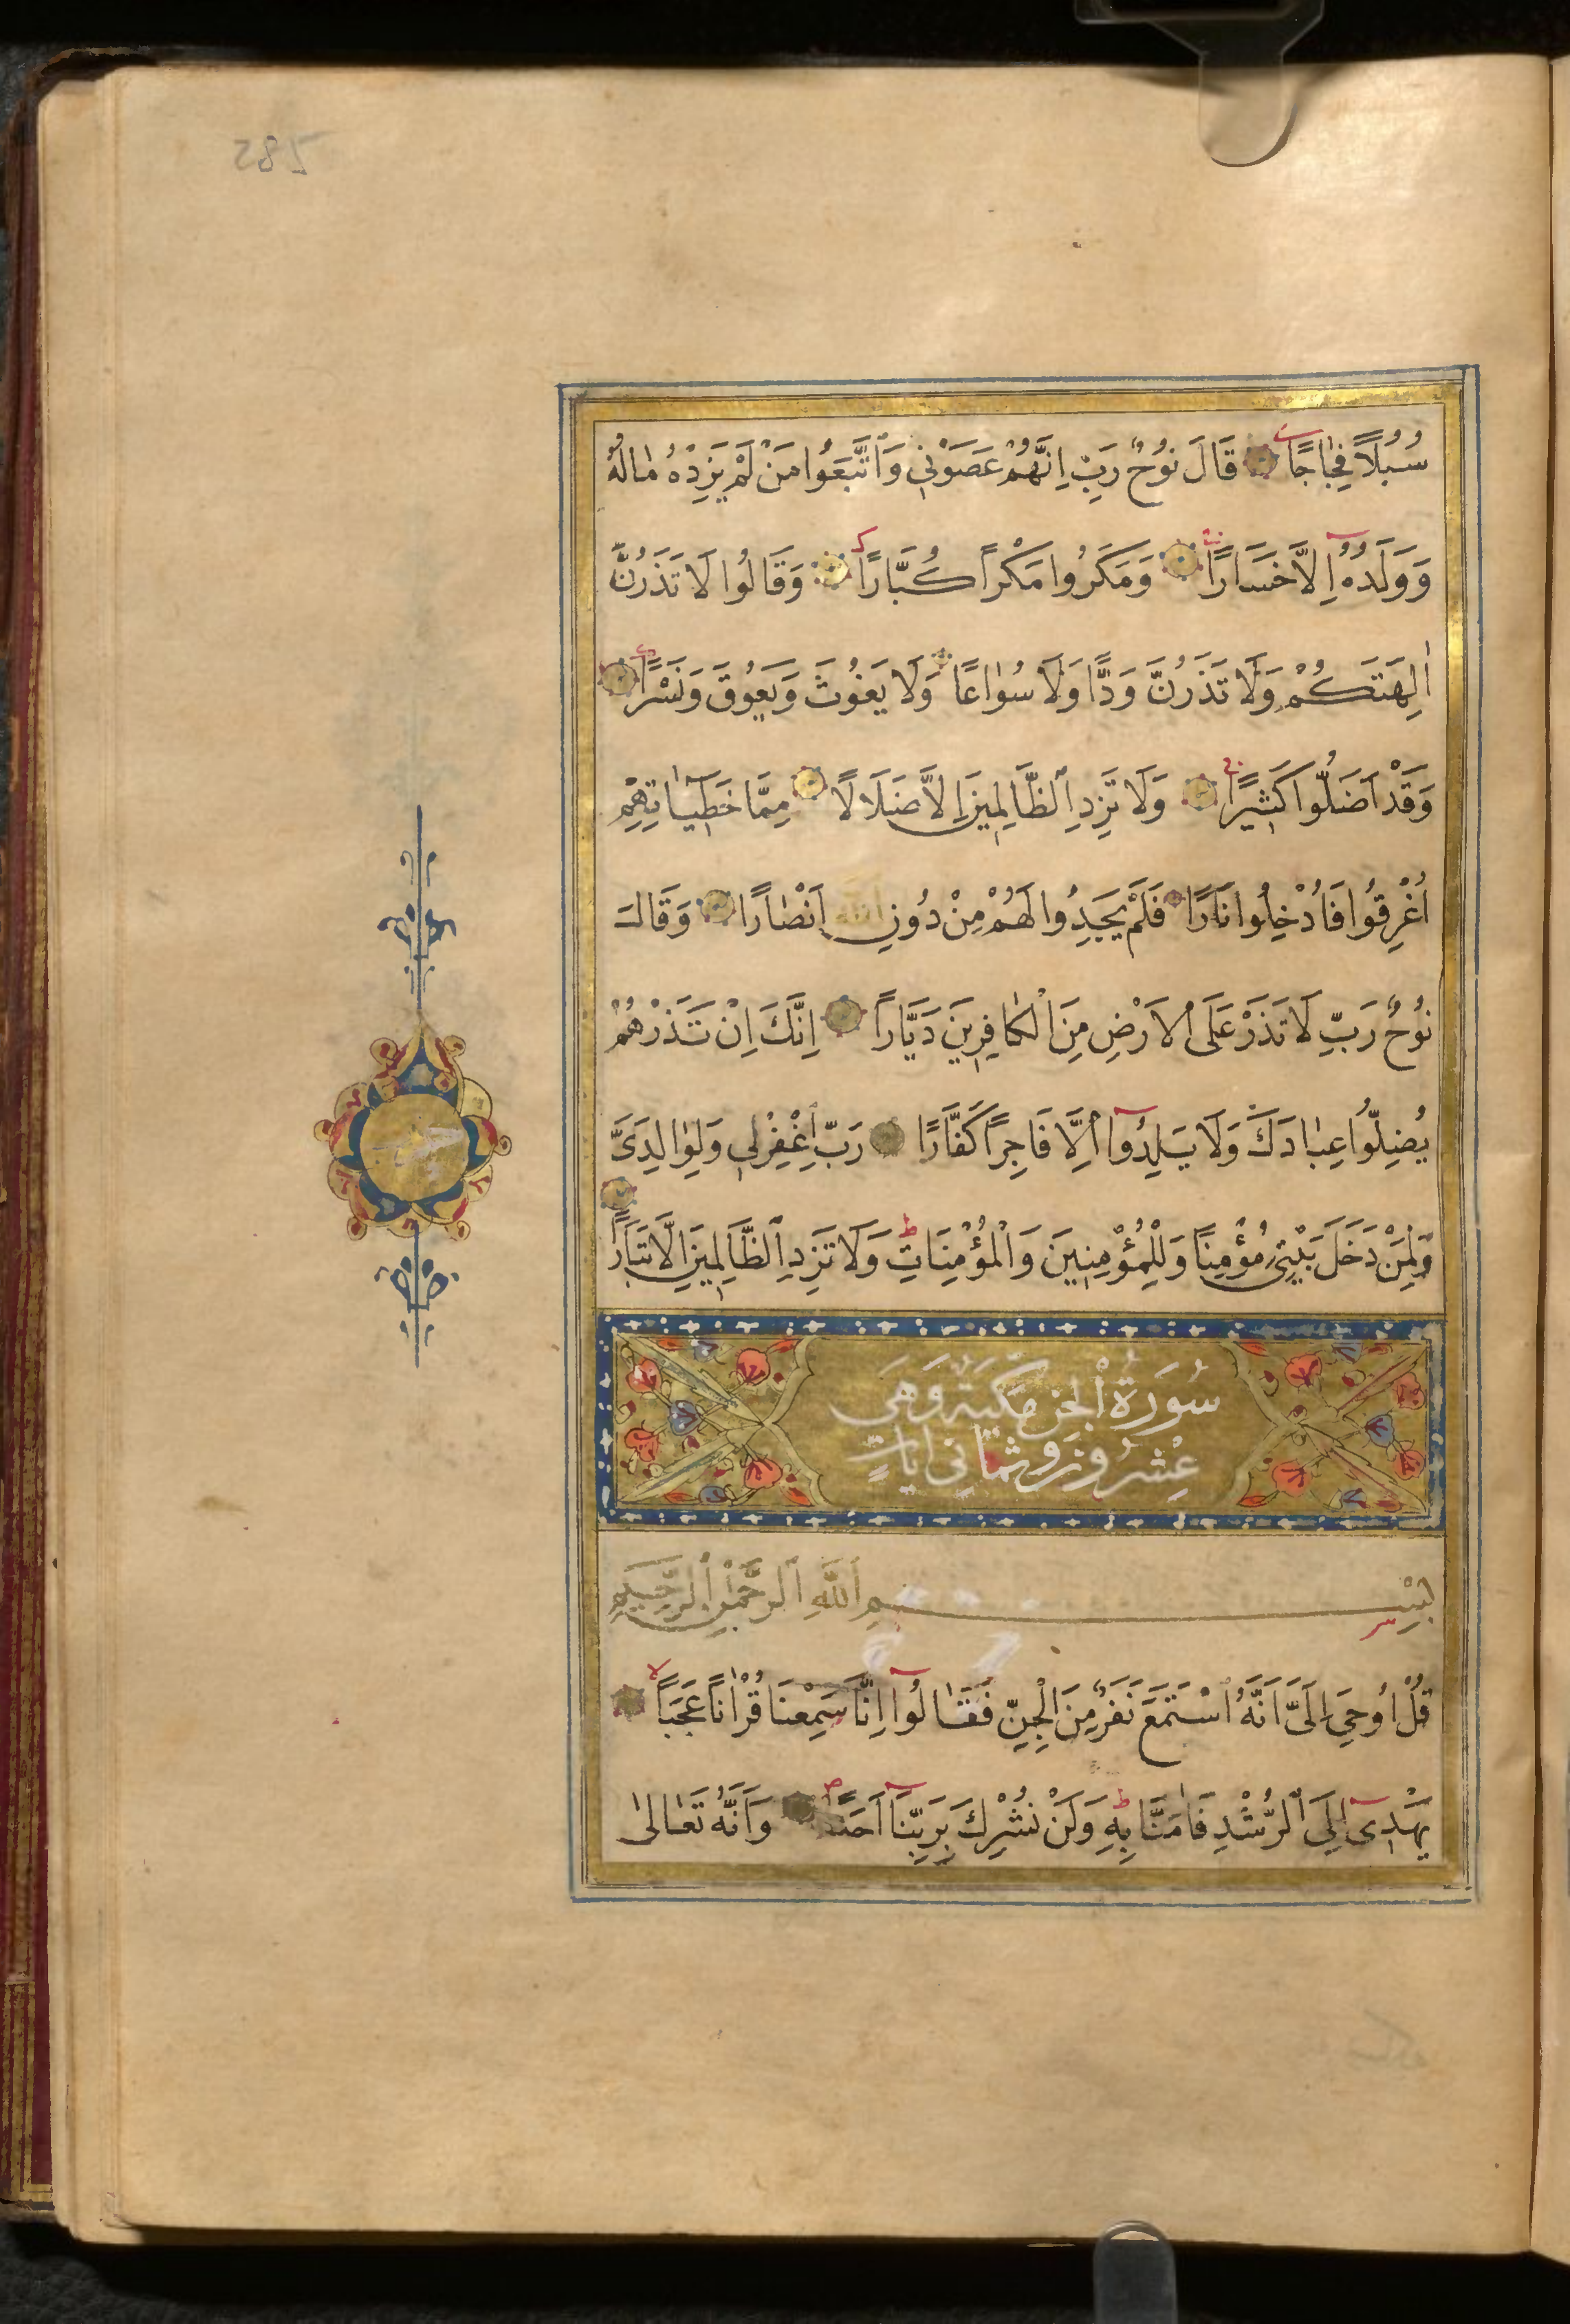 سُبُلًا فِجَاجًا قَالَ نُوحٌ رَبِّ اِنَّهُمْ عَصَوْنِي وَاتَّبَعُوا مَنْ لَمْ يَزِدْهُ مَالُهُ
وَوَلَدُهُ اِلَّا خَسَارًا وَمَكَرُوا مَكْرًا كُبَّارًا وَقَالُوا لَا تَذَرُنَّ
اٰلِهَتَكُمْ وَلَا تَذَرُنَّ وَدًّا وَلَا سُوَاعًا وَلَا يَغُوثَ وَيَعُوقَ وَنَسْرًا
وَقَدْ اَضَلُّوا كَثِيرًا وَلَا تَزِدِ الظَّالِمِينَ اِلَّا ضَلَالًا مِمَّا خَطِيـَٔاتِهِمْ
اُغْرِقُوا فَاُدْخِلُوا نَارًا فَلَمْ يَجِدُوا لَهُمْ مِنْ دُونِ اللّٰهِ اَنْصَارًا وَقَالَ
نُوحٌ رَبِّ لَا تَذَرْ عَلَى الْاَرْضِ مِنَ الْكَافِرِينَ دَيَّارًا اِنَّكَ اِنْ تَذَرْهُمْ
يُضِلُّوا عِبَادَكَ وَلَا يَلِدُوا اِلَّا فَاجِرًا كَفَّارًا رَبِّ اغْفِرْ لِي وَلِوَالِدَيَّ
وَلِمَنْ دَخَلَ بَيْتِيَ مُؤْمِنًا وَلِلْمُؤْمِنِينَ وَالْمُؤْمِنَاتِ وَلَا تَزِدِ الظَّالِمِينَ اِلَّا تَبَارًا
سُورَةُ الْجِنِّ مَكِّيَّةٌ وَهِيَ
عِشْرُونَ وَثَمَانِي اٰيَاتٍ
بِسْمِ اللّٰهِ الرَّحْمٰنِ الرَّحِيمِ
قُلْ اُوحِيَ اِلَيَّ اَنَّهُ اسْتَمَعَ نَفَرٌ مِنَ الْجِنِّ فَقَالُوا اِنَّا سَمِعْنَا قُرْاٰنًا عَجَبًا
يَهْدِي اِلَى الرُّشْدِ فَاٰمَنَّا بِهِ وَلَنْ نُشْرِكَ بِرَبِّنَا اَحَدًا وَاَنَّهُ تَعَالٰى
285